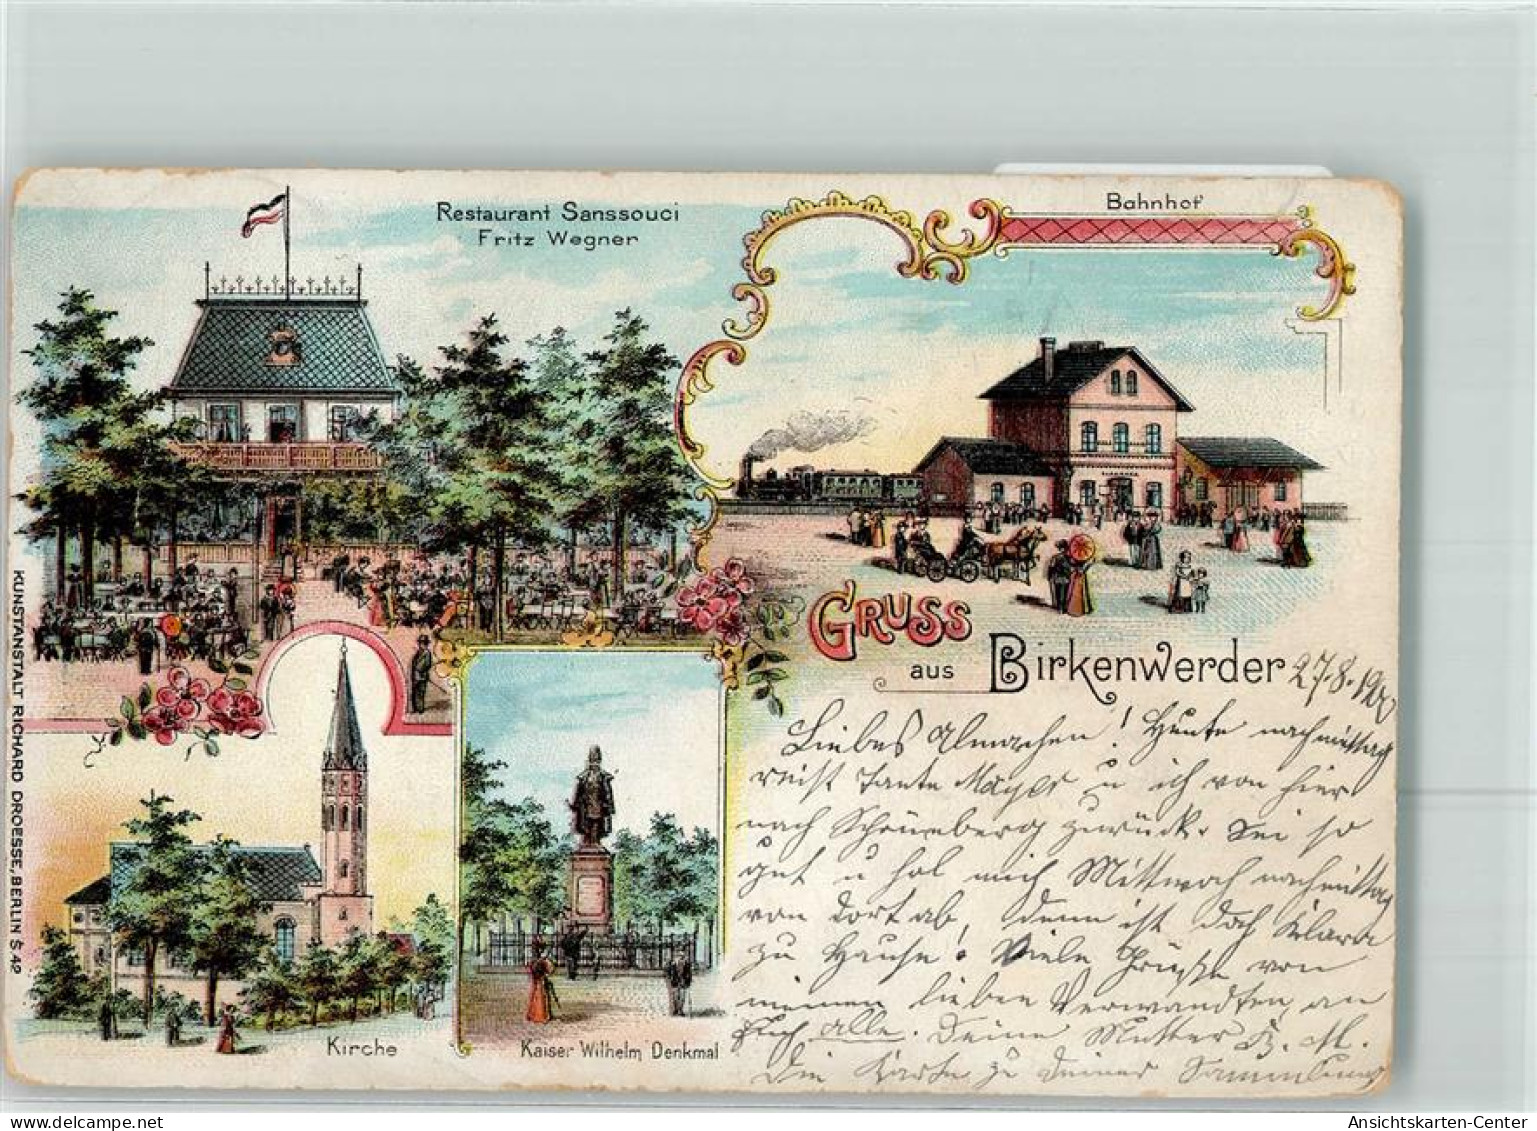 Restaurant Sanssouci
Fritz Wegner
Bahnhof
Gruss
aus Birkenwerder 27.8.190
Liebes Almachen! Heute nachmittag
reist Tante Mayer u ich von hier
nach Schöneberg zurück. Sei so
gut u hol mich Mittwoch nachmittag
von dort ab, denn ist doch Klara
zu Hause. Viele Grüße von
meinen lieben Verwandten, an
Euch alle. Deine Mutter B. M.
Die Karte zu Deiner Sammlung
Kirche
Kaiser Wilhelm Denkmal
KUNSTANSTALT RICHARD DROESSE, BERLIN S. 42
Ansichtskarten-Center